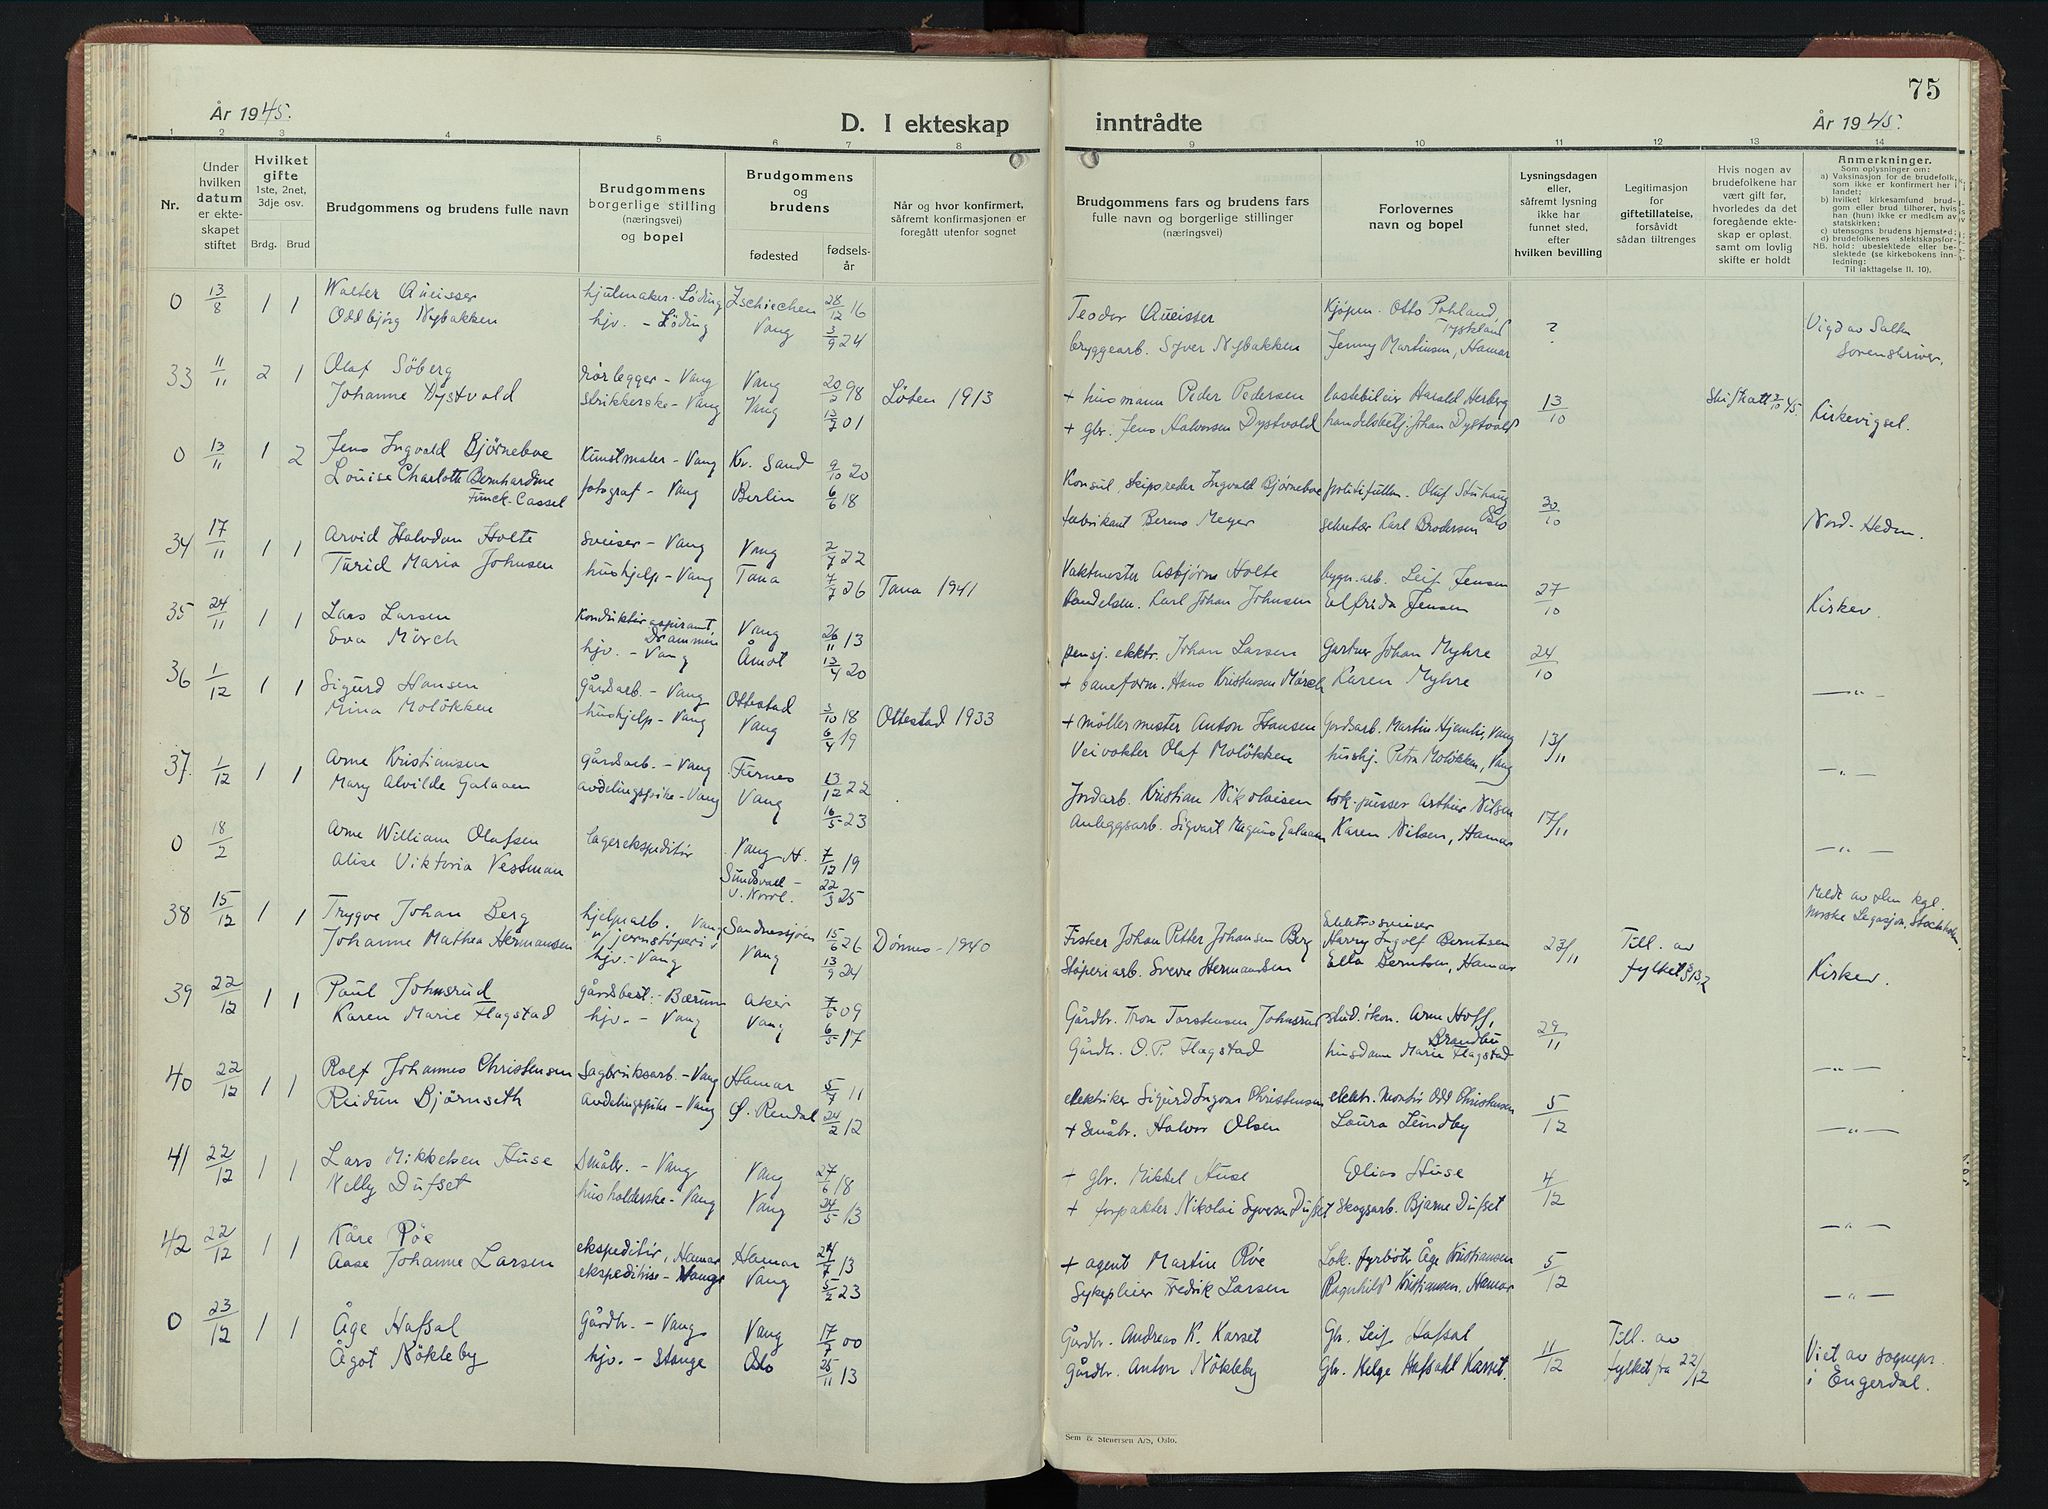 75
År 1945.
D. I ekteskap inntrådte
År 1945.
1 2 3 4 5 6 7 8 9 10 11 12 13 14
Nr.
Under hvilken datum er ekteskapet stiftet
Hvilket gifte 1ste, 2net, 3dje osv.
Brdg. Brud
Brudgommens og brudens fulle navn
Brudgommens borgerlige stilling (næringsvei) og bopel
Brudgommens og brudens
fødested
fødselsår
Når og hvor konfirmert, såfremt konfirmasjonen er foregått utenfor sognet
Brudgommens fars og brudens fars fulle navn og borgerlige stillinger (næringsvei)
Forlovernes navn og bopel
Lysningsdagen eller, såfremt lysning ikke har funnet sted, efter hvilken bevilling
Legitimasjon for giftetillatelse, forsåvidt sådan tiltrenges
Hvis nogen av brudefolkene har vært gift før, hvorledes da det foregående ekteskap er opløst samt om lovlig skifte er holdt
Anmerkninger.
Som oplysninger om:
a) Vaksinasjon for de brudefolk, som ikke er konfirmert her i landet;
b) hvilket kirkesamfund brudgom eller brud tilhører, hvis han (hun) ikke er medlem av statskirken;
c) utensogns brudens hjemsted;
d) brudefolkenes slektskapsforhold: ubeslektede eller beslektede (se kirkebokens innledning:
Til iakttagelse II. 10).
0 13/8 1 1 Walter Queisser hjulmaker - Löding Zschiechen 28/12 16 Teodor Queisser Kjöpm. Otto Pohland, Tyskland ? Vigd av Salten Sorenskriver.
Oddbjörg Nybakken hjv. - Löding Vang 3/9 24 bryggearb. Syver Nybakken Jenny Martinsen, Hamar
33 11/11 2 1 Olaf Söberg rörlegger - Vang Vang 20/2 98 Löten 1913 + husmann Peder Pedersen lastebileier Harald Herberg 13/10 Skifteatt 2/10 45. Kirkevigsel.
Johanne Dystvold strikkerske - Vang Vang 13/7 01 + gbr. Jens Halvorsen Dystvold handelsbetj. Johan Dystvold
0 13/11 1 2 Jens Ingvald Bjørneboe Kunstmaler - Vang Kr. Sand 9/10 20 Konsul, skipsreder Ingvald Bjørneboe politifullm. Olaf Stuhaug 30/10 Nord-Hedm.
Louise Charlotte Bernhardine Funck-Cassel fotograf - Vang Berlin 6/6 18 fabrikant Berens Meyer sekretær Karl Brodersen Oslo
34 17/11 1 1 Arvid Halvdan Holte sveiser - Vang Vang 2/7 22 Vaktmester Asbjörn Holte bygn.arb. Leif Jensen 27/10 Kirkev.
Turid Maria Johnsen hushjelp - Vang Tana 7/7 26 Tana 1941 Handelsm. Carl Johan Johnsen Elfrida Jensen
35 24/11 1 1 Lars Larsen Konduktöraspirant Drammen Vang 26/11 13 pensj. elektr. Johan Larsen Gartner Johan Myhre 24/10 —"—
Eva Mörch hjv. - Vang Åmot 13/4 20 + baneform. Hans Kristensen Mörch Karen Myhre
36 1/12 1 1 Sigurd Hansen Gårdsarb. - Vang Ottestad 3/10 18 Ottestad 1933 + möllermester Anton Hansen Gårdsarb. Martin Hjemli, Vang 13/11 —"—
Mina Molökken hushjelp - Vang Vang 6/4 19 Veivokter Olaf Molökken hushj. Petra Molökken, Vang
37. 1/12 1 1 Arne Kristiansen Gårdsarb. - Vang Furnes 13/12 22 Jordarb. Kristian Nikolaisen lok.pusser Arthur Nilsen 17/11 —"—
Mary Alvilde Galaaen avdelingspike - Vang Vang 16/5 23 Anleggsarb. Sigvart Magnus Galaaen Karen Nilsen, Hamar
0 18/2 Arne William Olafsen lagerekspeditör Vang H. 7/12 19 Meldt av den kgl. Norske Legasjon, Stockholm.
Alise Viktoria Vestman Sundsvall - v. Norrl. 22/3 25
38 15/12 1 1 Trygve Johan Berg hjelpearb. v/jernstöperi, Vang Sandnessjöen 15/6 26 Dönnes - 1940 Fisker Johan Petter Johansen Berg Elektrosveiser Harry Ingolf Berntsen 23/11 Till. av fylket 3/12 Kirkev.
Johanne Mathea Hermansen hjv. - Vang Vang 13/9 24 Stöperiarb. Sverre Hermansen Ella Berntsen, Hamar
39 22/12 1 1 Paul Johnsrud gårdsbest. - Bærum Aker 7/6 09 Gårdbr. Tron Torstensen Johnsrud stud.ökon. Arne Hoff, Brandbu 29/11 —"—
Karen Marie Flagstad hjv. - Vang Vang 6/5 17 Gårdbr. O. P. Flagstad husdame Marie Flagstad
40 22/12 1 1 Rolf Johannes Christensen Sagbruksarb. - Vang Hamar 5/7 11 elektriker Sigurd Ingvar Christensen elektr. montör Odd Christensen 5/12 —"—
Reidun Björnseth Avdelingspike - Vang Ø. Rendal 24/2 12 + Småbr. Halvor Olsen Laura Lundby
41 22/12 1 1 Lars Mikkelsen Huse Småbr. - Vang Vang 27/6 18 + gbr. Mikkel Huse Elias Huse 4/12 —"—
Nelly Dufset husholderske - Vang Vang 24/5 13 + forpakter Nikolai Syversen Dufset Skogsarb. Bjarne Dufset
42 22/12 1 1 Kåre Röe ekspeditör, Hamar Hamar 24/7 13 + agent Martin Röe Lok. fyrböter Åge Kristiansen 5/12 —"—
Aase Johanne Larsen ekspeditrise - Vang Vang 5/2 23 Sykepleier Fredrik Larsen Ragnhild Kristiansen, Hamar
0 23/12 1 1 Åge Hafsal Gårdbr. - Vang Vang 17/7 00 Gårdbr. Andreas K. Karset Gbr. Leif Hafsal 11/12 Till. av fylket fra 22/12 Viet av sognepr. i Engerdal.
Ågot Nökleby hjv. - Stange Oslo 25/11 13 Gårdbr. Anton Nökleby Gbr. Helge Hafsahl Karset.
Sem & Stenersen A/S, Oslo.